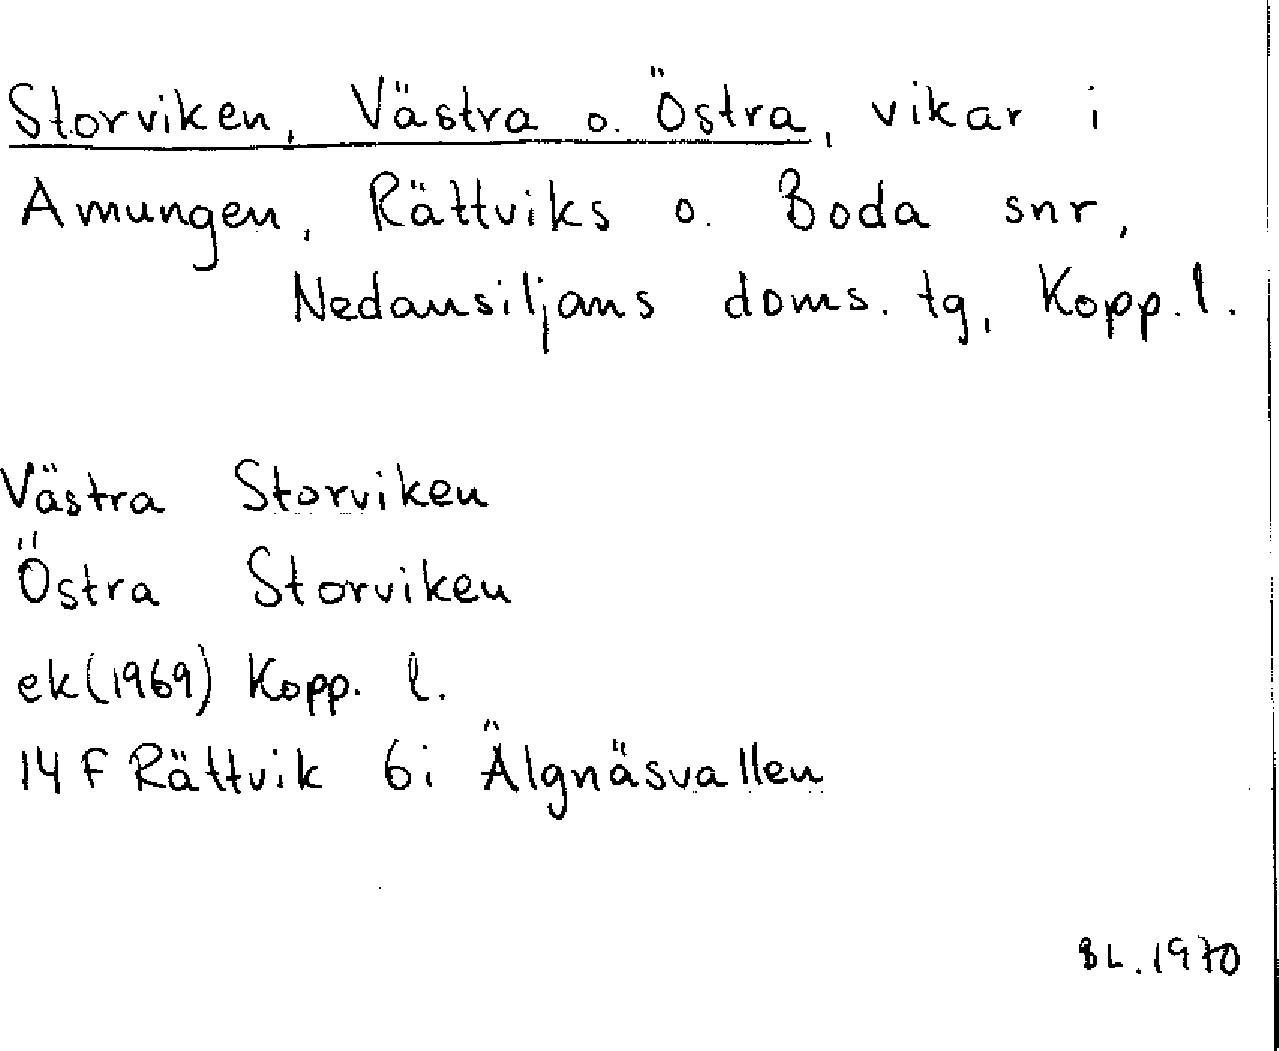 Storviken, Västra o. Östra, vikar i
Amungen, Rättviks o. Boda snr,
Nedansiljans doms. tg, Kopp. l.
Västra Storviken
Östra Storviken
ek (1969) Kopp. l.
14 F Rättvik 6i Älgnäsvallen
BL. 1970